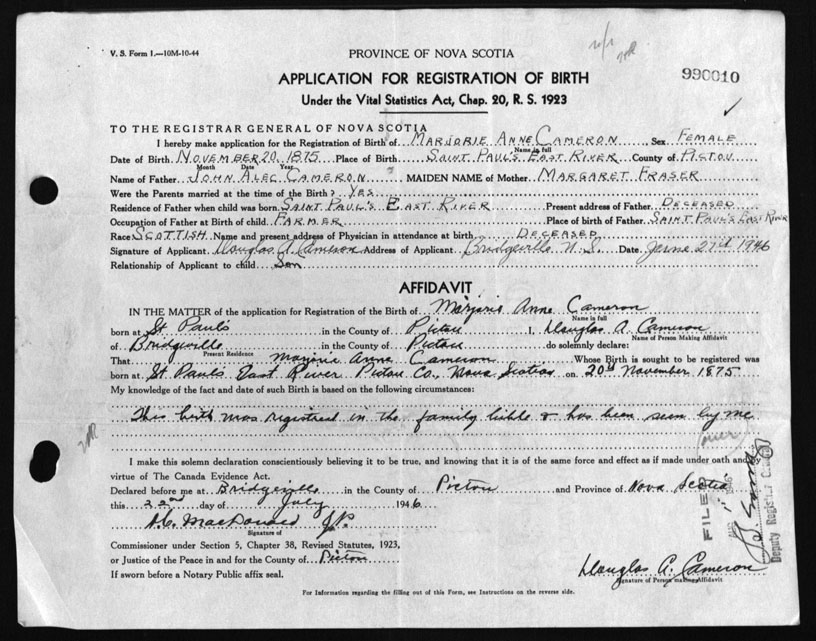 V. S. Form 1.—10M-10-44
PROVINCE OF NOVA SCOTIA
APPLICATION FOR REGISTRATION OF BIRTH
990010
Under the Vital Statistics Act, Chap. 20, R. S. 1923
TO THE REGISTRAR GENERAL OF NOVA SCOTIA
I hereby make application for the Registration of Birth of MARJORIE ANNE CAMERON Sex FEMALE
Name in full
Date of Birth NOVEMBER 20, 1875 Place of Birth SAINT PAUL'S EAST RIVER County of PICTOU
Month Date Year
Name of Father JOHN ALEC CAMERON MAIDEN NAME of Mother MARGARET FRASER
Were the Parents married at the time of the Birth? YES
Residence of Father when child was born SAINT PAUL'S EAST RIVER Present address of Father DECEASED
Occupation of Father at Birth of child FARMER Place of birth of Father SAINT PAUL'S EAST RIVER
Race SCOTTISH Name and present address of Physician in attendance at birth DECEASED
Signature of Applicant Douglas A. Cameron Address of Applicant Bridgeville N. S. Date June 27th 1946
Relationship of Applicant to child Son
AFFIDAVIT
IN THE MATTER of the application for Registration of the Birth of Marjorie Anne Cameron
Name in full
born at St Paul's in the County of Pictou I, Douglas A. Cameron
Name of Person Making Affidavit
of Bridgeville in the County of Pictou do solemnly declare:
Present Residence
That Marjorie Anne Cameron Whose Birth is sought to be registered was
born at St. Pauls East River Pictou Co., Nova Scotia on 20th November 1875
My knowledge of the fact and date of such Birth is based on the following circumstances:
This birth was registered in the family bible & has been seen by me
(over)
I make this solemn declaration conscientiously believing it to be true, and knowing that it is of the same force and effect as if made under oath and
virtue of The Canada Evidence Act.
Declared before me at Bridgeville in the County of Pictou and Province of Nova Scotia
this 22nd day of July 1946
FILED
Deputy Registrar General
MacDonald J.P.
Signature of
Commissioner under Section 5, Chapter 38, Revised Statutes, 1923,
or Justice of the Peace in and for the County of Pictou
If sworn before a Notary Public affix seal.
Douglas A. Cameron
Signature of Person making Affidavit
For Information regarding the filling out of this Form, see Instructions on the reverse side.